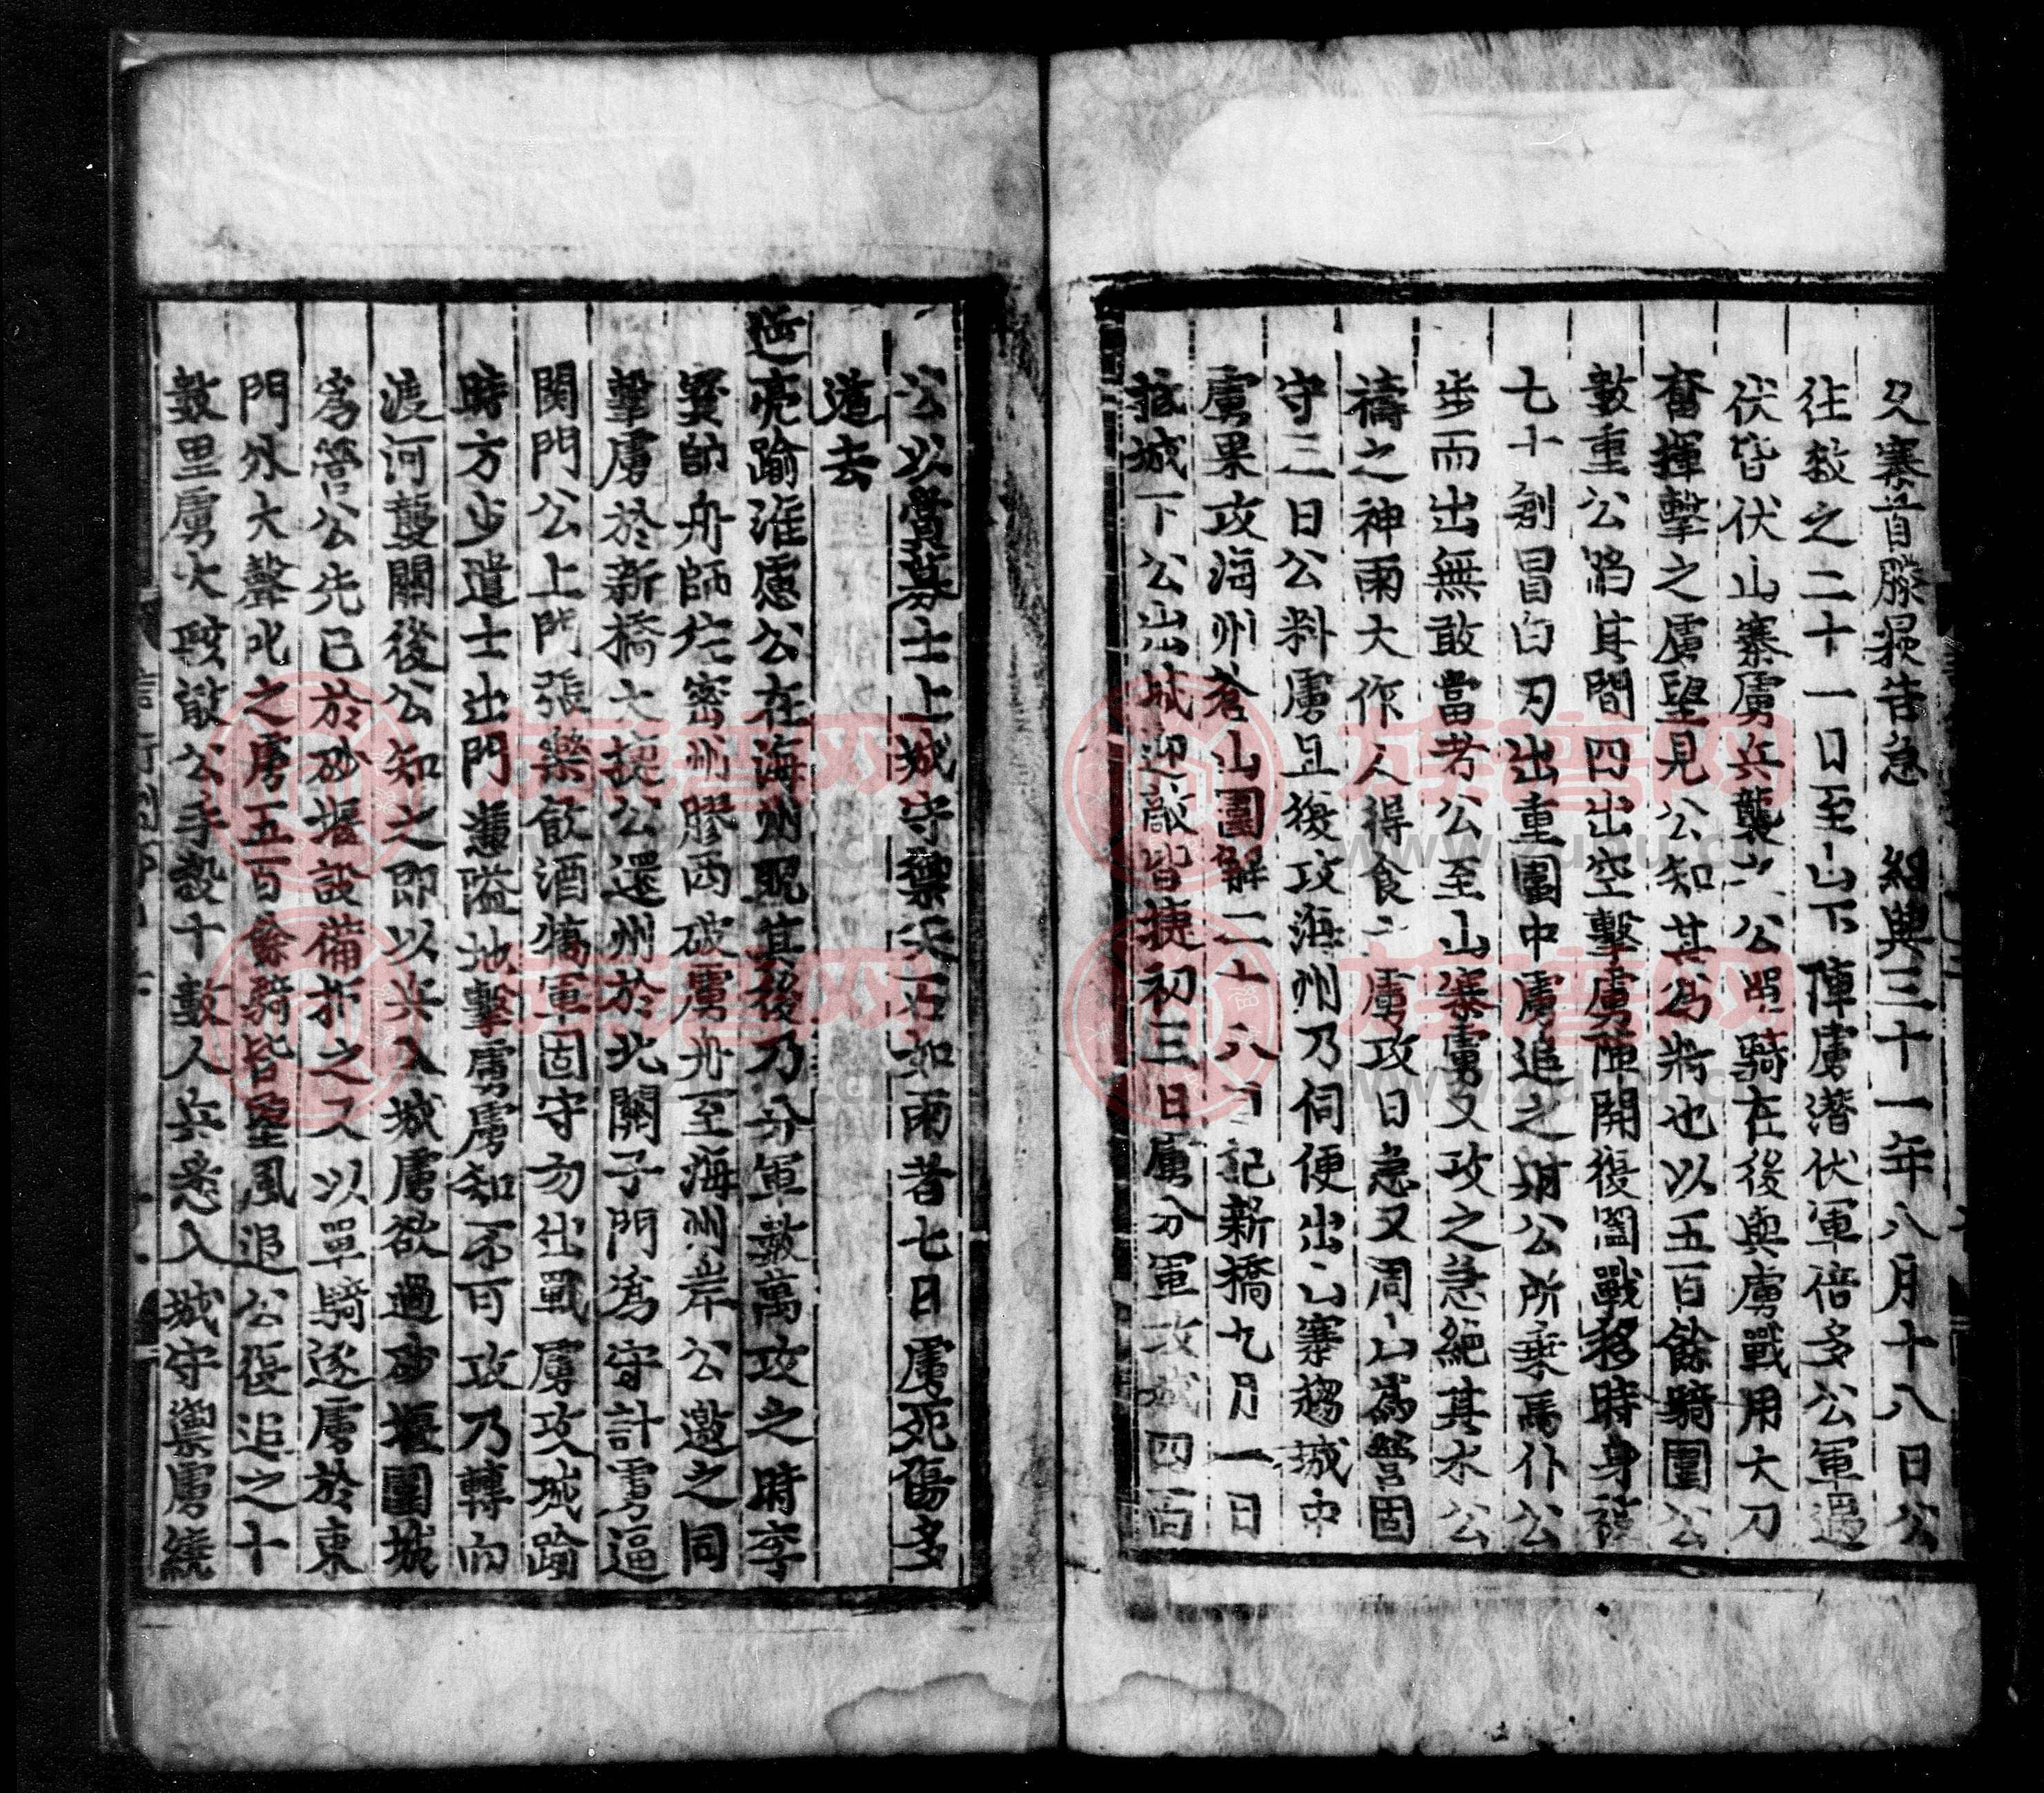 久寨首滕㒫告急 紹興三十一年八月十八日公
往救之二十一日至山下陣虜潛伏軍倍多公軍遇
伏皆伏山寨虜兵襲公公單騎在後與虜戰用大刀
奮揮擊之虜望見公知其為將也以五百餘騎圍公
數重公陷其間四出空擊虜陣開復闔戰移時身被
七十創冒白刃出重圍中虜追之甚公所乘馬仆公
步而出無敢當者公至山寨虜又攻之急絕其水公
禱之神雨大作人得食二虜攻日急又周山為營固
守三日公料虜且復攻海州乃伺便出山寨趨城中
虜果攻海州蒼山圍解二十八日記新橋九月一日
抵城下公出城迎敵皆捷初三日虜分軍攻城四面
公以嘗募士上城守禦矢石如雨者七日虜死傷多
遁去
逆亮踰淮慮公在海州睨其後乃分軍數萬攻之時李
寶帥舟師往密州膠西破虜舟至海州岸公邀之同
擊虜於新橋大捷公還州於北關子門為守計虜逼
関門公上門張樂飲酒犒軍固守勿出戰虜攻城踰
時方少遣士出門邀隘地擊虜虜知不可攻乃轉向
渡河襲關後公知之即以兵入城虜欲過砂堰圍城
為營公先已於砂堰設備拒之又以單騎逐虜於東
門外大聲叱之虜五百餘騎皆望風退公復追之十
數里虜大駭散公手殺十數人兵悉入城守禦虜繞
www.zupu.cn
族譜网
族譜网
www.zupu.cn
族譜网
族譜网